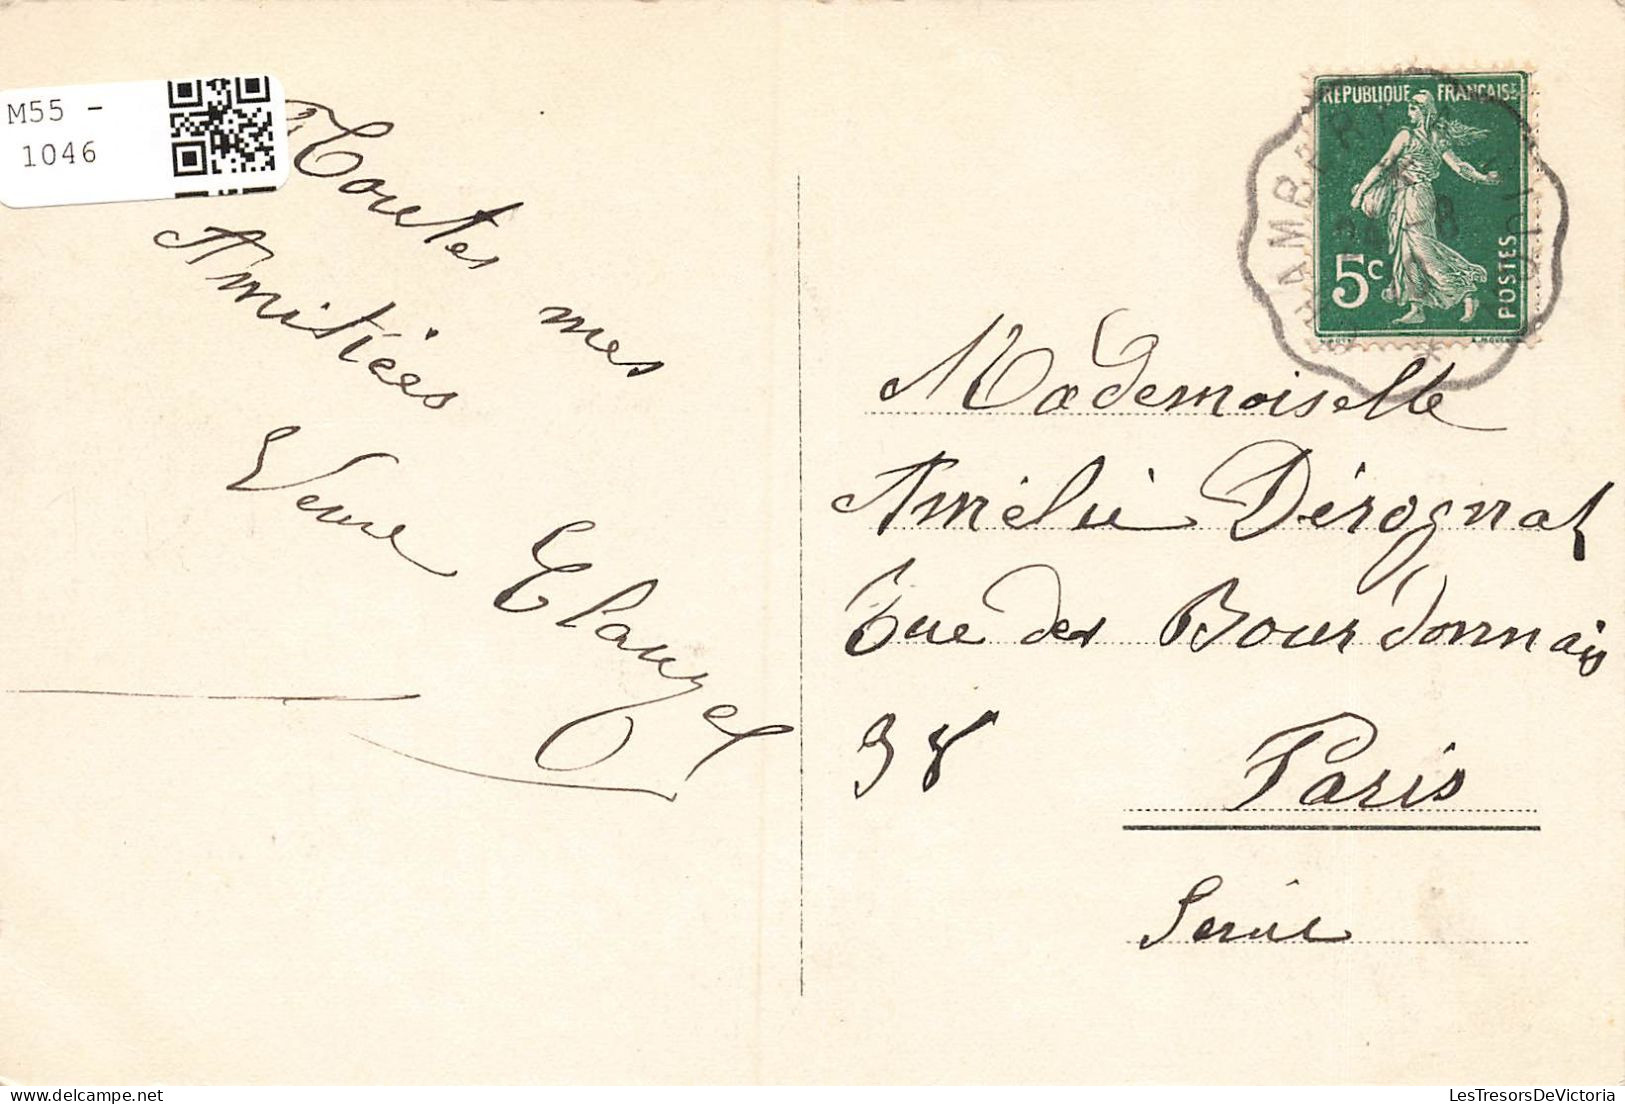 M55 -
1046
Toutes mes
Amitiées
Veuve Clauzel
REPUBLIQUE FRANÇAISE
5c
POSTES
Mademoiselle
Amélie Dérognat
Rue des Bourdonnais
38 Paris
Seine
LesTresorsDeVictoria